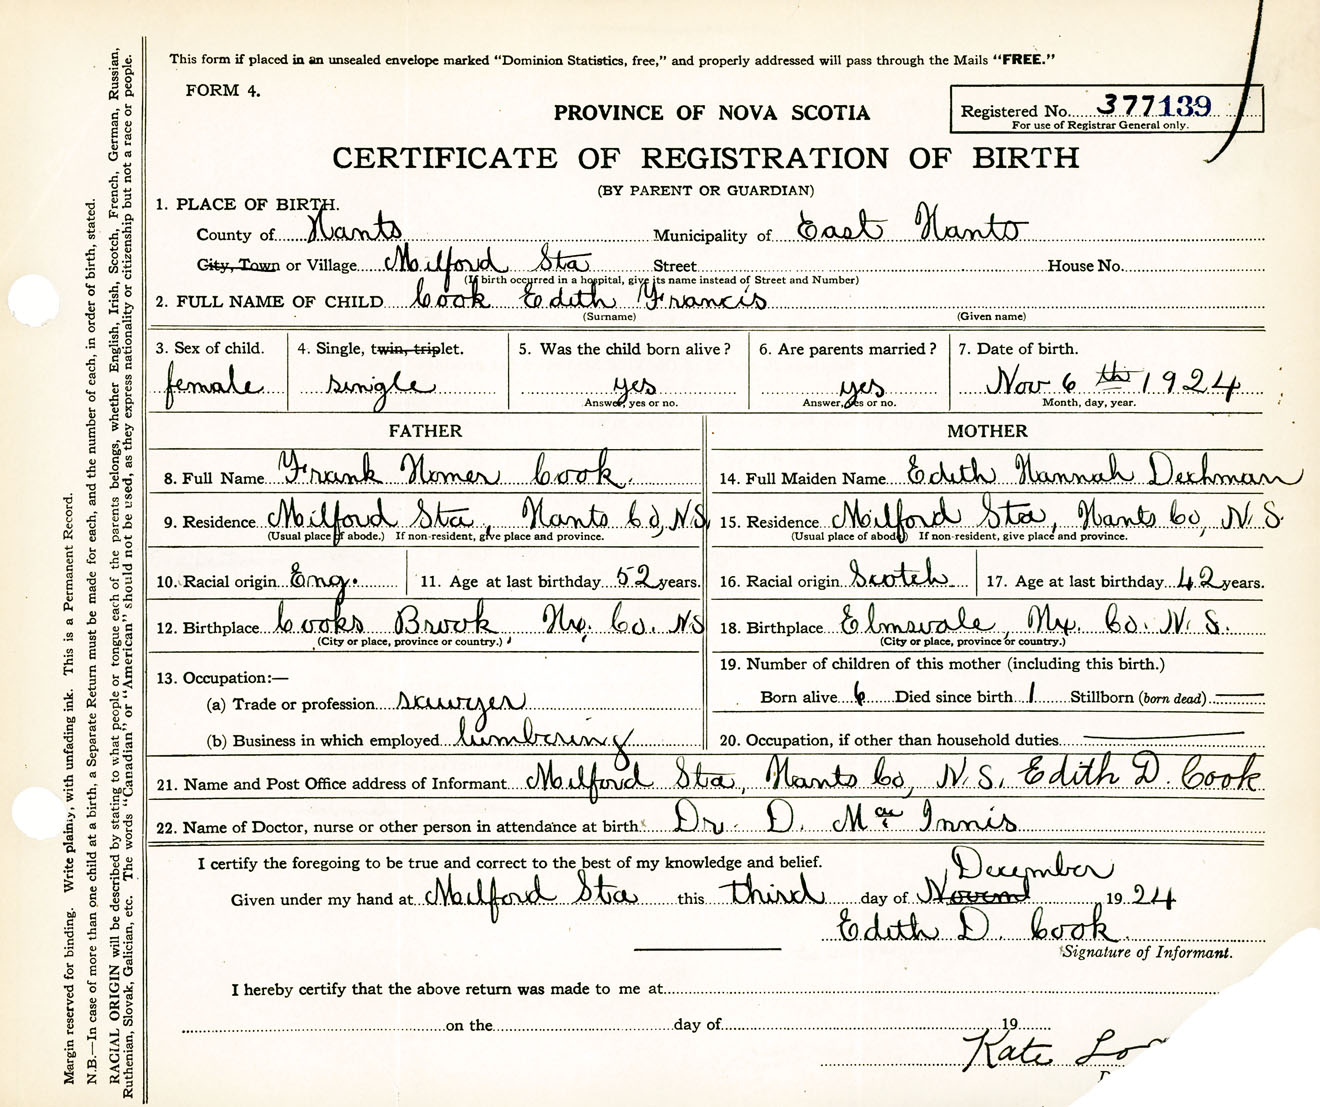 This form if placed in an unsealed envelope marked "Dominion Statistics, free," and properly addressed will pass through the Mails "FREE."
FORM 4.
PROVINCE OF NOVA SCOTIA
Registered No. 377139
For use of Registrar General only.
CERTIFICATE OF REGISTRATION OF BIRTH
(BY PARENT OR GUARDIAN)
1. PLACE OF BIRTH.
County of Hants Municipality of East Hants
City, Town or Village Milford Sta Street House No.
(If birth occurred in a hospital, give its name instead of Street and Number)
2. FULL NAME OF CHILD Cook Edith Francis
(Surname) (Given name)
3. Sex of child. 4. Single, twin, triplet. 5. Was the child born alive? 6. Are parents married? 7. Date of birth.
female single yes yes Nov 6 th 1924
Answer, yes or no. Answer, yes or no. Month, day, year.
FATHER MOTHER
8. Full Name Frank Homer Cook. 14. Full Maiden Name Edith Hannah Dechman
9. Residence Milford Sta, Hants Co, N.S. 15. Residence Milford Sta, Hants Co, N.S.
(Usual place of abode.) If non-resident, give place and province. (Usual place of abode) If non-resident, give place and province.
10. Racial origin Eng. 11. Age at last birthday 52 years. 16. Racial origin Scotch 17. Age at last birthday 42 years.
12. Birthplace Cooks Brook, Hx. Co. NS 18. Birthplace Elmsvale, Hx. Co. N.S.
(City or place, province or country.) (City or place, province or country.)
13. Occupation:— 19. Number of children of this mother (including this birth.)
(a) Trade or profession sawyer Born alive 6 Died since birth 1 Stillborn (born dead)
(b) Business in which employed lumbering 20. Occupation, if other than household duties
21. Name and Post Office address of Informant Milford Sta, Hants Co, N.S. Edith D. Cook
22. Name of Doctor, nurse or other person in attendance at birth Dr. D. Mac Innis
I certify the foregoing to be true and correct to the best of my knowledge and belief.
December
Given under my hand at Milford Sta this third day of Novemd 1924
Edith D. Cook.
Signature of Informant.
I hereby certify that the above return was made to me at
on the day of 19
Kate
Margin reserved for binding. Write plainly, with unfading ink. This is a Permanent Record.
N.B.—In case of more than one child at a birth, a Separate Return must be made for each, and the number of each, in order of birth, stated.
RACIAL ORIGIN will be described by stating to what people or tongue each of the parents belongs, whether English, Irish, Scotch, French, German, Russian,
Ruthenian, Slovak, Galician, etc. The words "Canadian" or "American" should not be used, as they express nationality or citizenship but not a race or people.